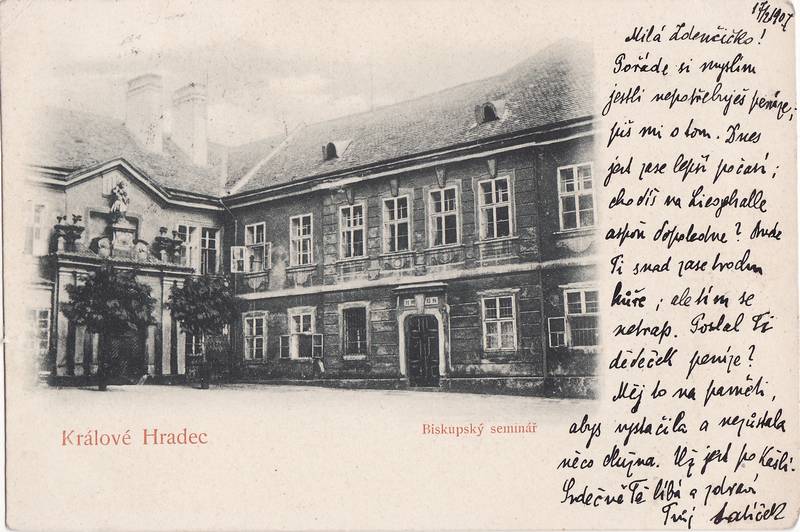 17/2 1907
Milá Zdenčičko!
Pořáde si myslím
jestli nepotřebuješ peníze;
piš mi o tom. Dnes
jest zase lepší počasí;
chodíš na Liegehalle
aspoň dopoledne? Bude
Ti snad zase trochu
hůře; ale tím se
netrap. Poslal Ti
dědeček peníze?
Měj to na paměti,
abys vystačila a nezůstala
něco dlužna. Už jest po kašli.
Srdečně Tě líbá a zdraví
Tvůj
Králové Hradec
Biskupský seminář